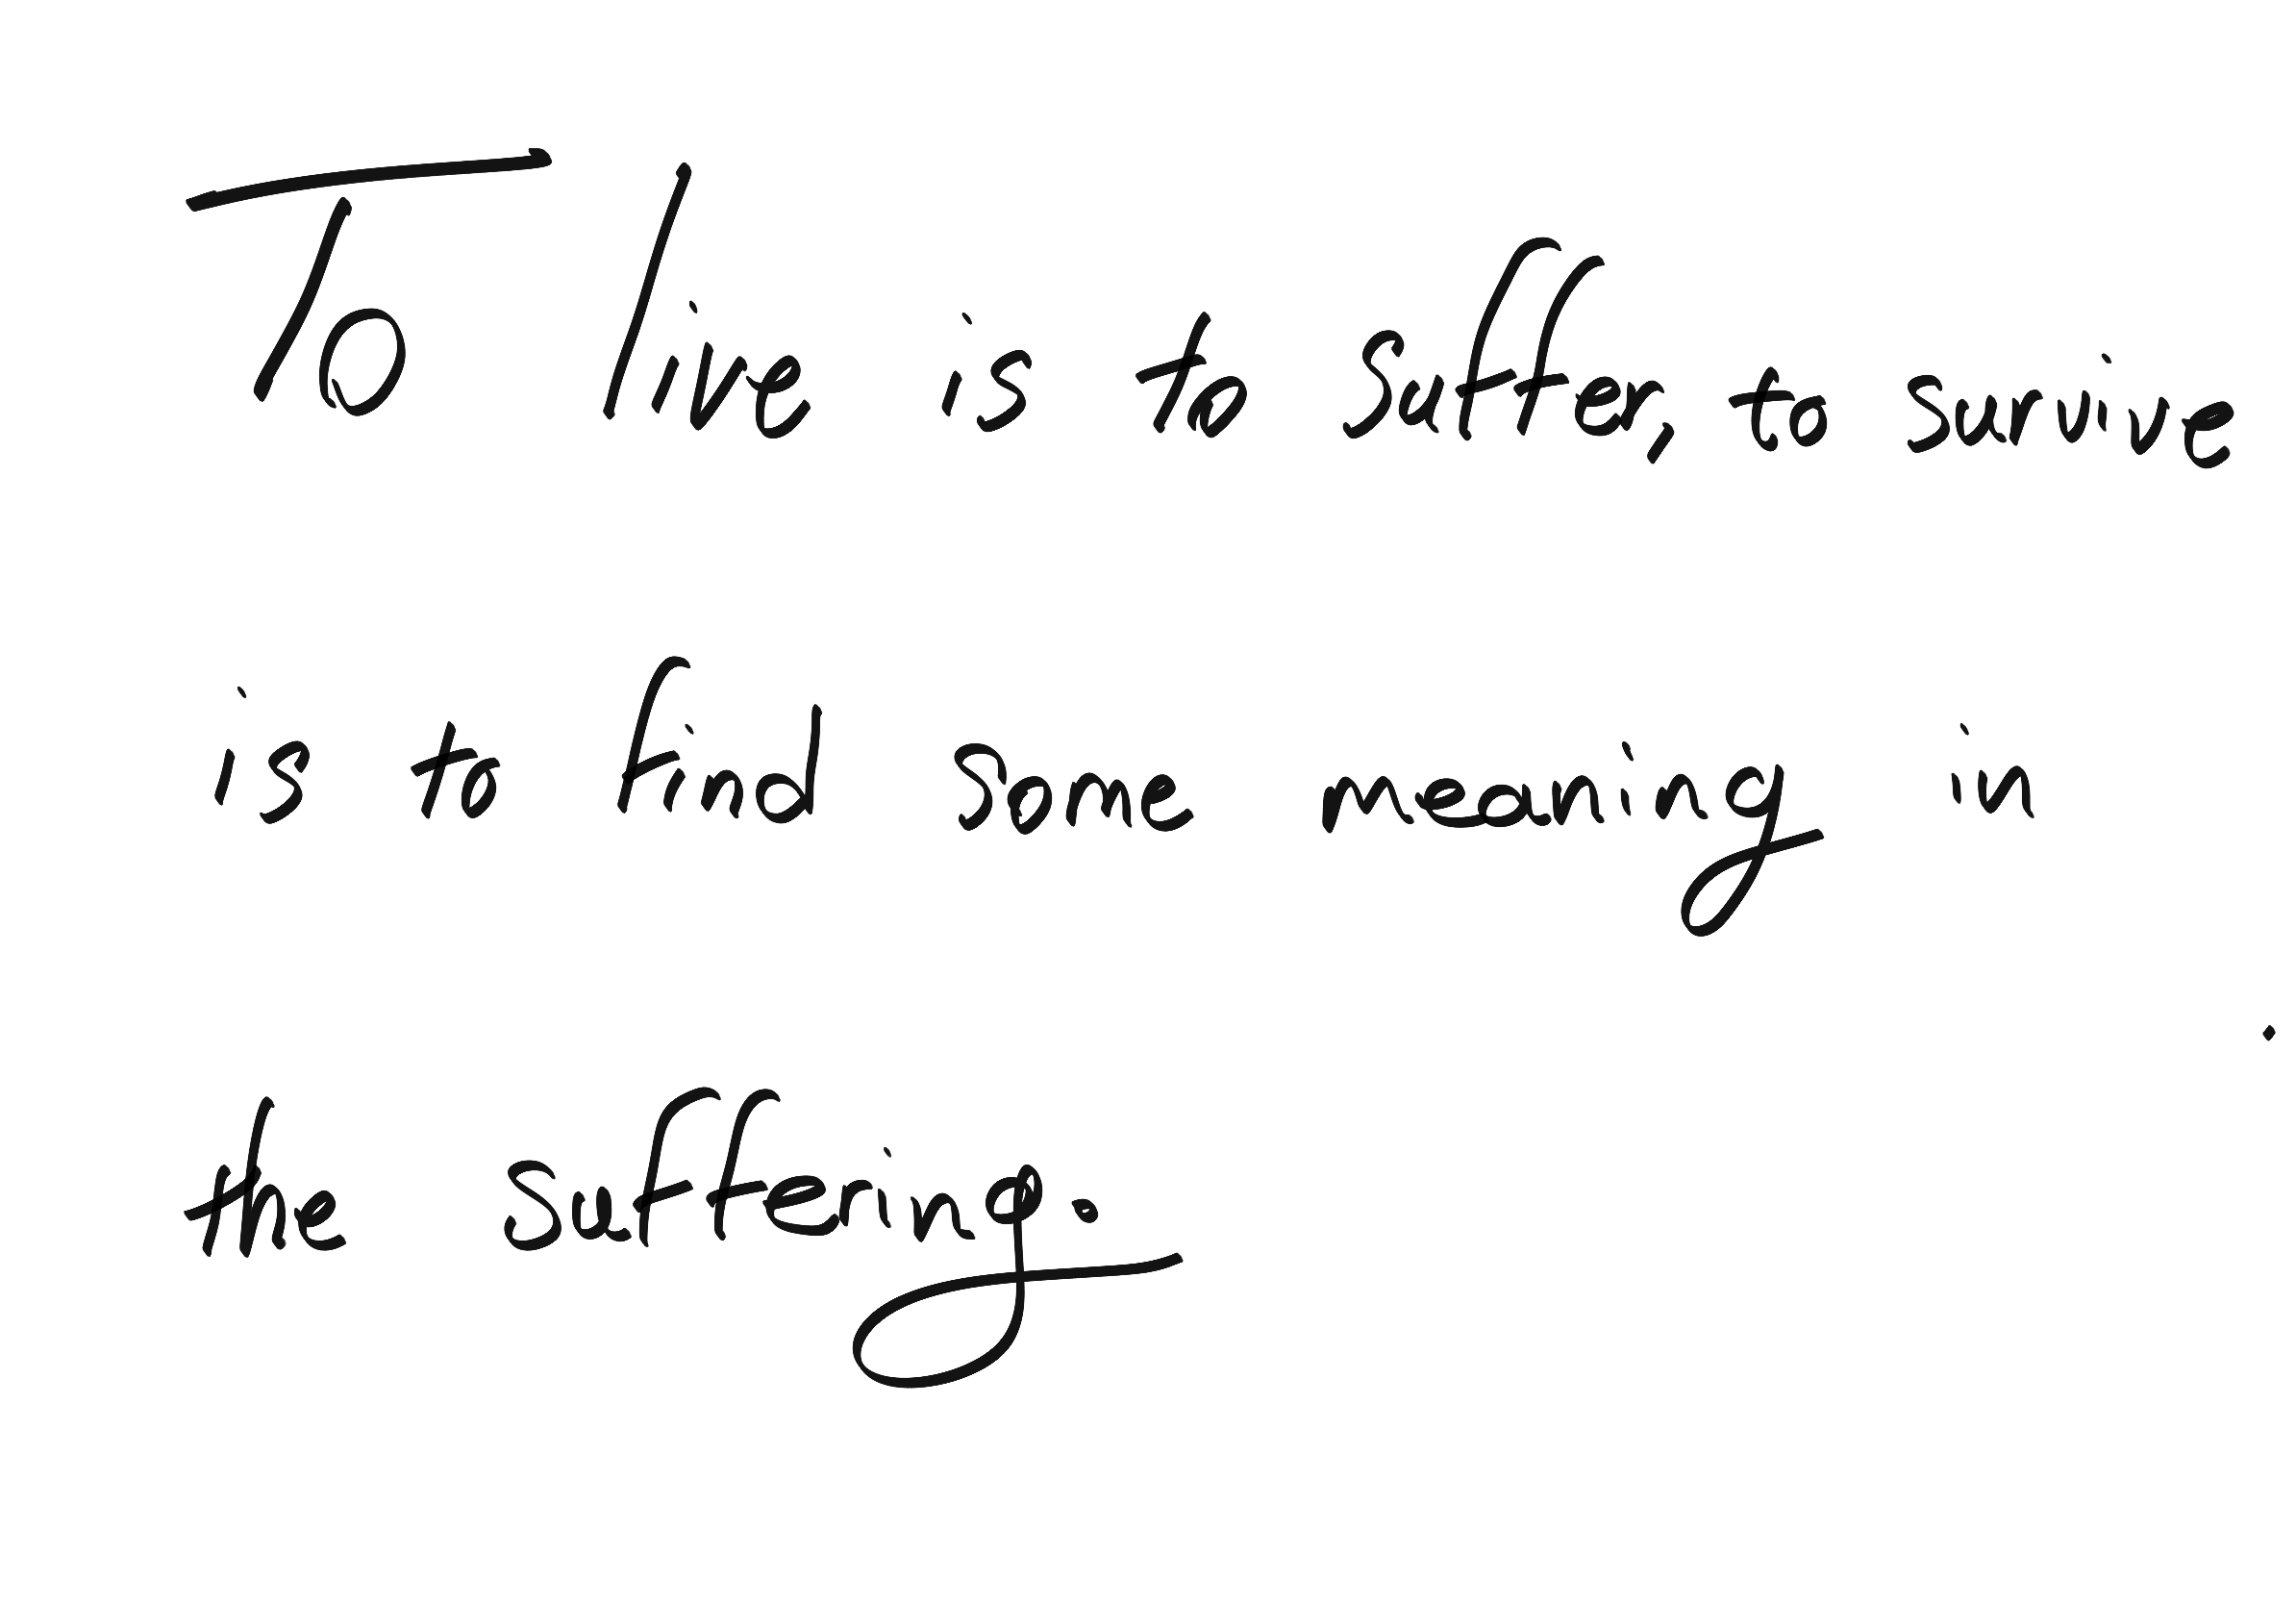 To live is to suffer, to survive
is to find some meaning in
the suffering.